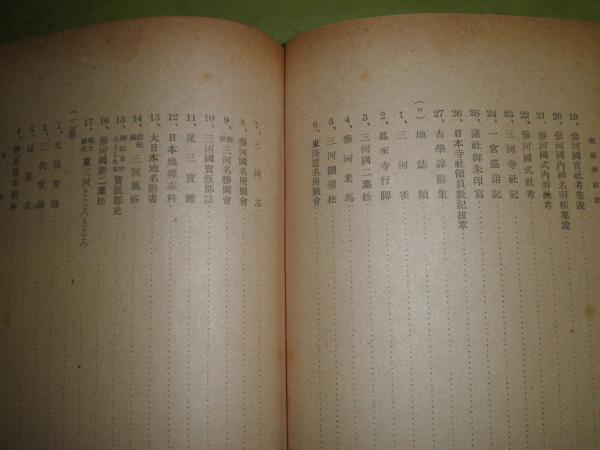 19、參河國官社考集說
20、參河國內神名明帳集說
21、參河國內神社考
22、參河國式社考
23、三河寺社記
24、一宮巡詣記
25、諸社御朱印寫
26、日本寺社領員數記拔萃
27、古學諄辭集
(ロ) 地誌類
1、三河雀
2、鳳來寺行脚
3、三河國二葉松
4、參河老馬
5、三河刪補松
6、東海道名所圖會
7、三河志
8、參河國名所圖會
9、三河名勝圖會
10、三河國寶飯郡誌
11、尾三寶鑑
12、日本地理志料
13、大日本地名辭書
14、三河風俗
15、神社を中心としたる寶飯郡史
16、參河國新二葉松
17、東三河ところどころ
1、文德實錄
2、三代實錄
3、延喜式